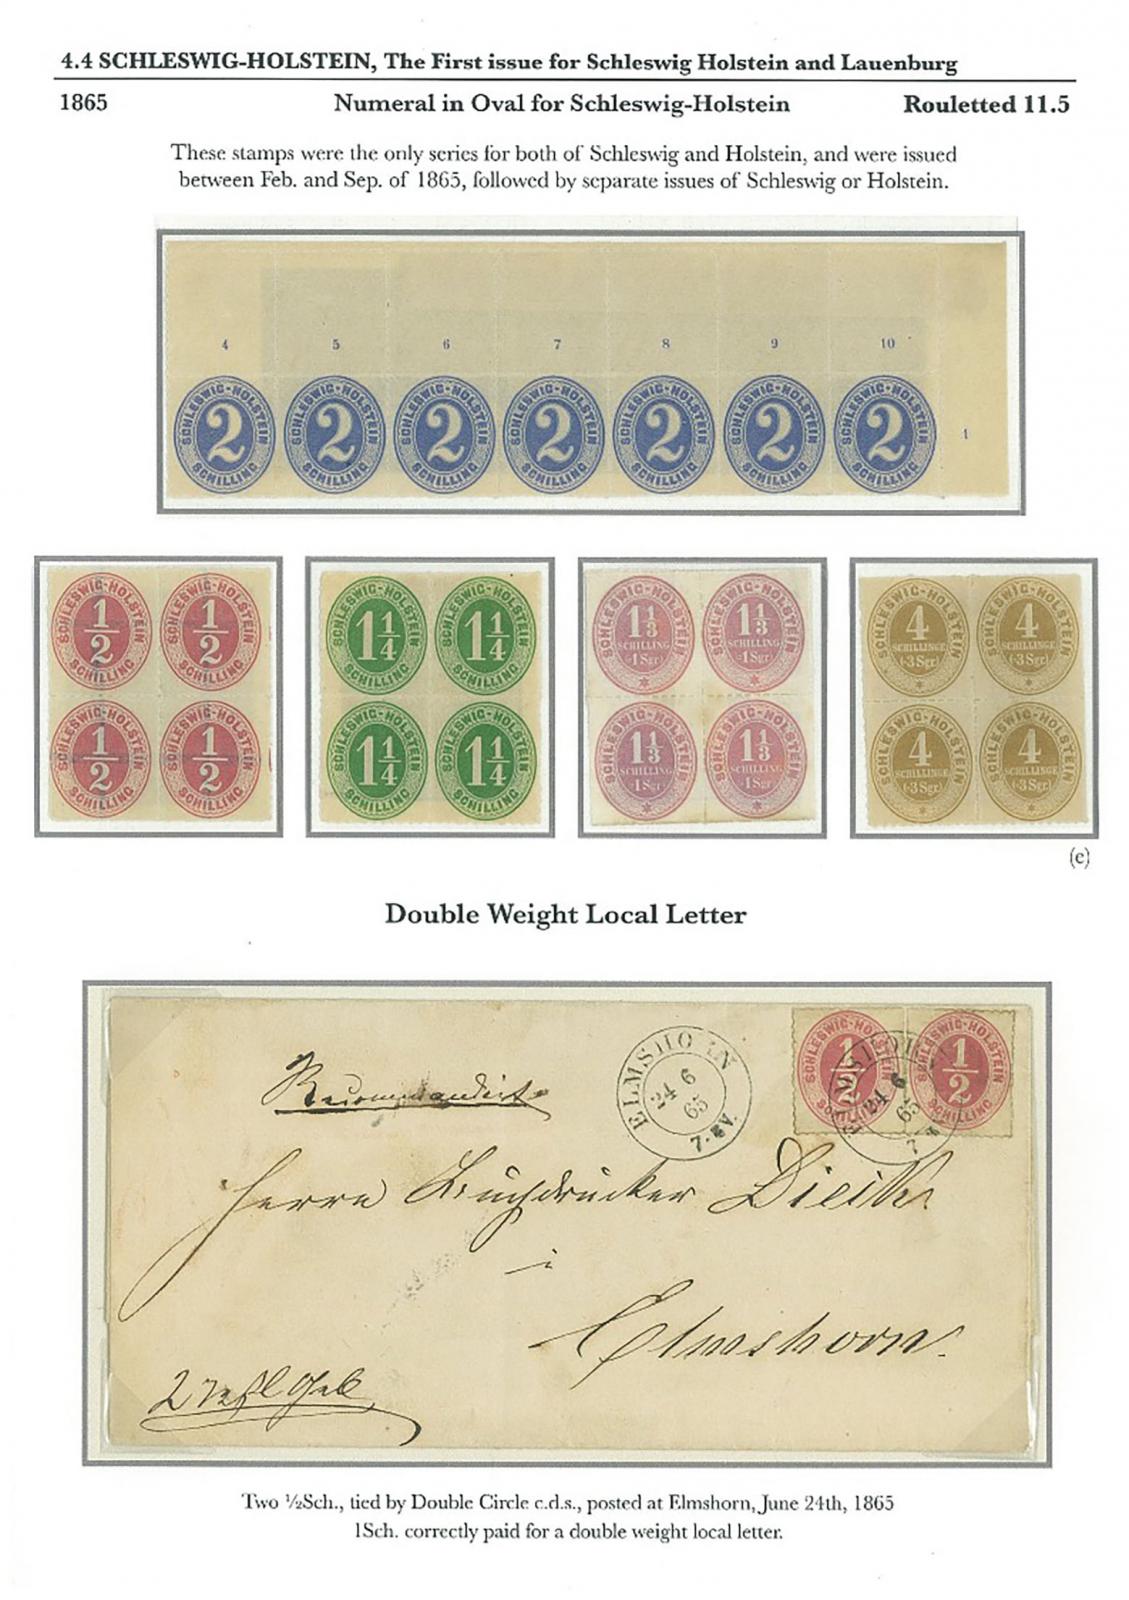 4.4 SCHLESWIG-HOLSTEIN, The First issue for Schleswig Holstein and Lauenburg
1865 Numeral in Oval for Schleswig-Holstein Rouletted 11.5
These stamps were the only series for both of Schleswig and Holstein, and were issued
between Feb. and Sep. of 1865, followed by separate issues of Schleswig or Holstein.
4 5 6 7 8 9 10
SCHLESWIG-HOLSTEIN 2 SCHILLING
SCHLESWIG-HOLSTEIN 2 SCHILLING
SCHLESWIG-HOLSTEIN 2 SCHILLING
SCHLESWIG-HOLSTEIN 2 SCHILLING
SCHLESWIG-HOLSTEIN 2 SCHILLING
SCHLESWIG-HOLSTEIN 2 SCHILLING
SCHLESWIG-HOLSTEIN 2 SCHILLING
1
SCHLESWIG-HOLSTEIN 1/2 SCHILLING
SCHLESWIG-HOLSTEIN 1/2 SCHILLING
SCHLESWIG-HOLSTEIN 1/2 SCHILLING
SCHLESWIG-HOLSTEIN 1/2 SCHILLING
SCHLESWIG-HOLSTEIN 1 1/4 SCHILLING
SCHLESWIG-HOLSTEIN 1 1/4 SCHILLING
SCHLESWIG-HOLSTEIN 1 1/4 SCHILLING
SCHLESWIG-HOLSTEIN 1 1/4 SCHILLING
SCHLESWIG-HOLSTEIN 1 1/3 SCHILLING (=1 Sgr.) *
SCHLESWIG-HOLSTEIN 1 1/3 SCHILLING (=1 Sgr.) *
SCHLESWIG-HOLSTEIN 1 1/3 SCHILLING (=1 Sgr.) *
SCHLESWIG-HOLSTEIN 1 1/3 SCHILLING (=1 Sgr.) *
SCHLESWIG-HOLSTEIN 4 SCHILLINGE (=3 Sgr.) *
SCHLESWIG-HOLSTEIN 4 SCHILLINGE (=3 Sgr.) *
SCHLESWIG-HOLSTEIN 4 SCHILLINGE (=3 Sgr.) *
SCHLESWIG-HOLSTEIN 4 SCHILLINGE (=3 Sgr.) *
(e)
Double Weight Local Letter
SCHLESWIG-HOLSTEIN 1/2 SCHILLING
SCHLESWIG-HOLSTEIN 1/2 SCHILLING
ELMSHORN 24 6 65
ELMSHORN 24 6 65
Recommandirt
Herrn Buchdrucker
i
Elmshorn.
2
Two ½Sch., tied by Double Circle c.d.s., posted at Elmshorn, June 24th, 1865
1Sch. correctly paid for a double weight local letter.